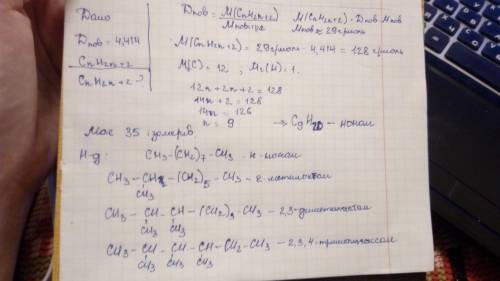 Дано
Dпов = 4,414
CnH2n+2
CnH2n+2 - ?
Dпов = M(CnH2n+2) / Mповітря
M(CnH2n+2) = Dпов Mпов
Mпов = 29 г/моль
M(CnH2n+2) = 29 г/моль · 4,414 = 128 г/моль
Mr(C) = 12 ; Mr(H) = 1.
12n + 2n + 2 = 128
14n + 2 = 128
14n = 126
n = 9 → C9H20 - нонан
Має 35 ізомерів
Н-д: CH3-(CH2)7-CH3 - н-нонан
CH3 - CH - (CH2)5 - CH3 - 2-метилоктан
CH3
CH3 - CH - CH - (CH2)3 - CH3 - 2,3-диметилгептан
CH3 CH3
CH3 - CH - CH - CH - CH2 - CH3 - 2,3,4-
CH3 CH3 CH3